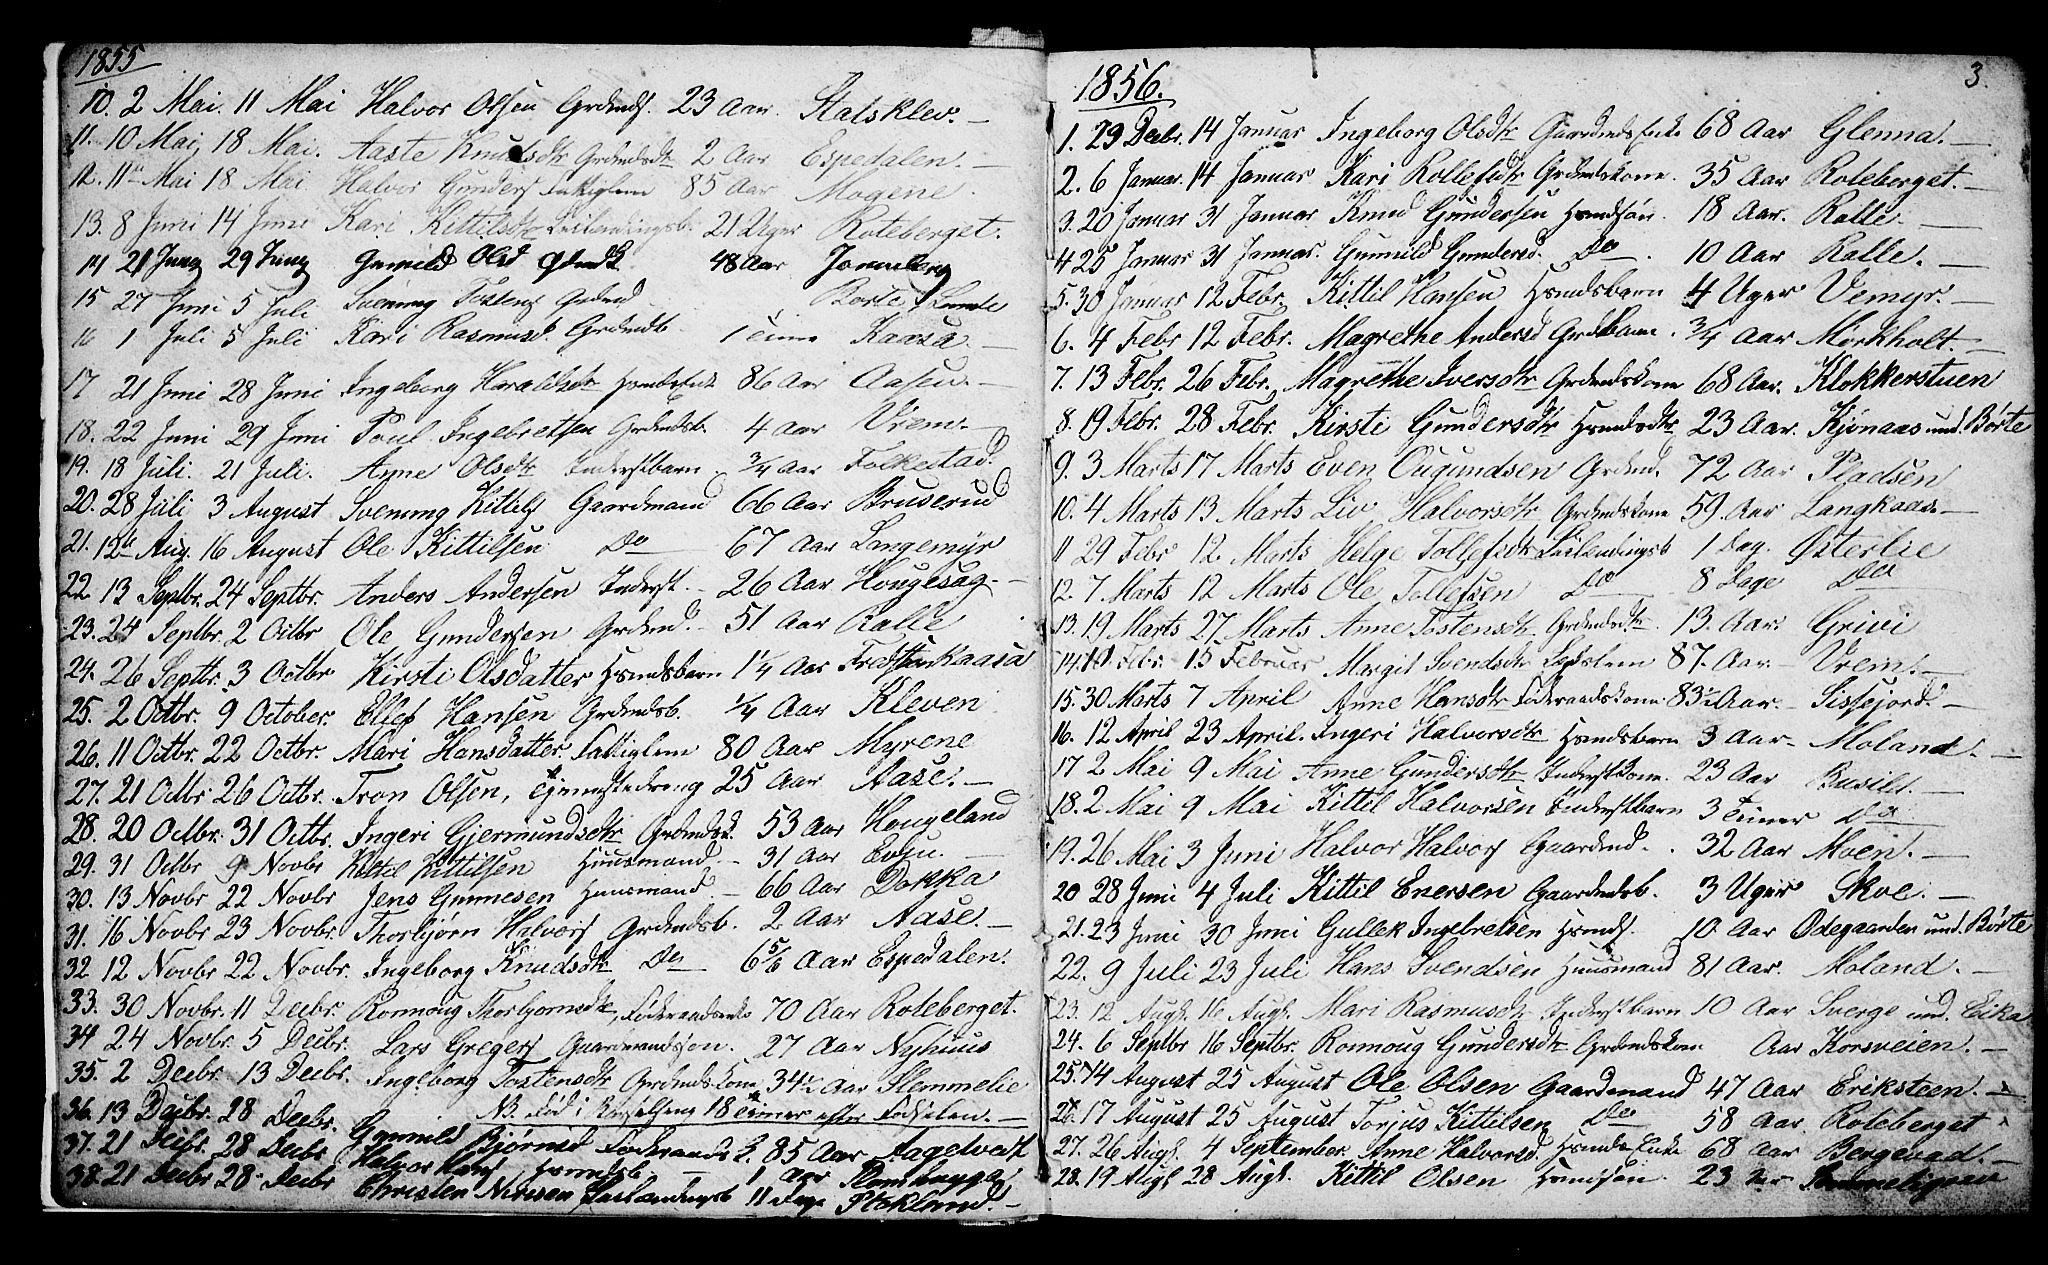 1855
10. 2 Mai. 11 Mai Halvor Olsen Grdmds. 23 Aar. Stalsklev. —
11. 10 Mai, 18 Mai. Aaste Knudsdtr Grdmdsdtr 2 Aar Espedalen. —
12. 11te Mai 18 Mai Halvor Gunders Fattiglem 85 Aar Mogene.
13. 8 Juni 14 Juni Kari Kittilsdtr Leilendingsb. 21 Uger Roteberget.
14 21 Juny 29 Juny Gunild Olsd 48 Aar
15 27 Juni 5 Juli Svening Tostens Grdmd Borte
16 1 Juli 5 Juli Kari Rasmusd. Grdmdb. 1 Time Kaasa. —
17 21 Juni 28 Juni Ingeborg Haraldsdtr 86 Aar Aasen. —
18. 22 Juni 29 Juni Poul Ingebretsen Grdmdsb. 4 Aar Vrem. —
19. 18 Juli. 21 Juli. Anne Olsdtr Inderstbarn 3/4 Aar Folkestad.
20. 28 Juli 3 August Svening Kittils Gaardmand 66 Aar Bruserud
21. 12te Aug. 16 August Ole Kittilsen Do 67 Aar Langemyr
22 13 Septbr. 24 Septbr. Anders Andersen Inderst. — 26 Aar Hougesag. —
23. 24 Septbr. 2 Octbr Ole Gundersen Grdmd. — 51 Aar Ralle
24. 26 Septbr. 3 Octbr Kirsti Olsdatter Hsmdsbarn 1 1/4 Aar Kaasa
25. 2 Octbr. 9 October. Ellef Hansen Grdmdsb. 1/4 Aar Kleven
26. 11 Octbr. 22 Octbr. Mari Hansdatter Fattiglem 80 Aar Myrene
27. 21 Octbr 26 Octbr. Tron Olsen, Tjenestedreng 25 Aar Aase. —
28. 20 Octbr. 31 Octbr. Ingeri Gjermundsdtr Grdmdsk. 53 Aar Hougeland
29. 31 Octbr 9 Novbr Kittel Kittilsen Huusmand. — 31 Aar Evju. —
30. 13 Novbr 22 Novbr Jens Gunnesen Huusmand — 66 Aar Dokka
31. 16 Novbr 23 Novbr. Thorbjørn Halvors Grdmdsb. 2 Aar Aase. —
32 12 Novbr 22 Novbr. Ingeborg Knudsdtr Do 6 5/6 Aar Espedalen.
33. 30 Novbr. 11 Decbr. Ronnoug Thorbjornsdtr, Föderaadsenke 70 Aar Roteberget.
34 24 Novbr. 5 Decbr. Lars Gregers Gaardmandssøn. 27 Aar Nyhuus
35. 2 Decbr. 13 Decbr. Ingeborg Tostensdtr Grdmdskone 34 1/2 Aar Flemmelie
NB. Död i Barselseng 18 Timer efter Födselen. —
36. 13 Decbr. 28 Decbr. Gunnild Bjørnsd Föderaads 85 Aar Aagetvedt
37. 21 Decbr. 28 Decbr Halvor Hans Hsmdsb. — 1 Aar
38. 21 Decbr 28 Decbr Christen Nirisen Leilendingsb 11 Dage Stoklund. —
3.
1856.
1. 29 Decbr. 14 Januar Ingeborg Olsdtr Gaardmds Enke 68 Aar Glenna. —
2. 6 Januar. 14 Januar Kari Rollefsdtr Grdmdskone. 35 Aar Roteberget. —
3. 20 Januar 31 Januar Knud Gundersen Hsmdsön. 18 Aar. Ralle —
4 25 Januar 31 Januar. Gunnild Gundersd. Do 10 Aar Ralle. —
5. 30 Januar 12 Febr. Kittil Hansen Hsmdsbarn 4 Uger Vemyr. —
6. 4 Febr 12 Febr. Magrethe Andersd Grdbarn. 3/4 Aar Mørkholt. —
7. 13 Febr. 26 Febr. Magrethe Iversdtr Grdmdskone 68 Aar. Klokkerstuen
8. 19 Febr. 28 Febr. Kirsti Gundersdtr Hsmdsdtr 23 Aar. Kjønaas und. Børte
9. 3 Marts 17 Marts Even Ougundsen Grdmd. 72 Aar Pladsen
10. 4 Marts 13 Marts Liv Halvorsdtr Grdmdskone 59 Aar Langkaas. —
11 29 Febr 12 Marts Helge Tollefsdtr Leilendingsb 1 Dag. Østerlie
12. 7 Marts 12 Marts Ole Tollefsen Do 8 Dage Do
13. 19 Marts 27 Marts Anne Tostensdtr Grdmdsdtr. 13. Aar. Grivi
14 Febr. 15 Februar Margit Svendsdtr 87. Aar — Vrem. —
15. 30 Marts 7 April Anne Hansdtr Föderaadskone. 83 1/2 Aar. — Sissejord. —
16. 12 April 23 April. Ingeri Halvorsdtr Hsmdsbarn 3 Aar — Moland. —
17 2 Mai 9 Mai Anne Gundersdtr Inderst Kone. 23 Aar —
18. 2 Mai 9 Mai Kittil Halvorsen Inderstbarn 3 Timer Do
19. 26 Mai 3 Juni Halvor Halvors Gaardmd. 32 Aar Moen. —
20 28 Juni 4 Juli Kittil Enersen Gaardmdsb. 3 Uger Skoe. —
21. 23 Juni 30 Juni Gullek Ingebretsen Hsmds. 10 Aar Ødegaarden und. Børte
22. 9 Juli 23 Juli Hans Svendsen Huusmand 81 Aar. Moland. —
23. 12 Augs. 16 Augs. Mari Rasmusdtr Inderstbarn 10 Aar Sverge und. Eika
24. 6 Septbr 16 Septbr. Ronnoug Gundersdtr Grdmdskone Aar Korsveien. —
25. 14 August 25 August Ole Olsen Gaardmand 47 Aar Eriksteen. —
26. 17 August 25 August Torjus Kittilsen Do 58 Aar. Roteberget
27. 26 Augs. 4 September. Anne Halvorsd. Hsmds Enke 68 Aar Bergevad. —
28. 19 Augs 28 Augs. Kittil Olsen Hsmdsøn. 23 Aar